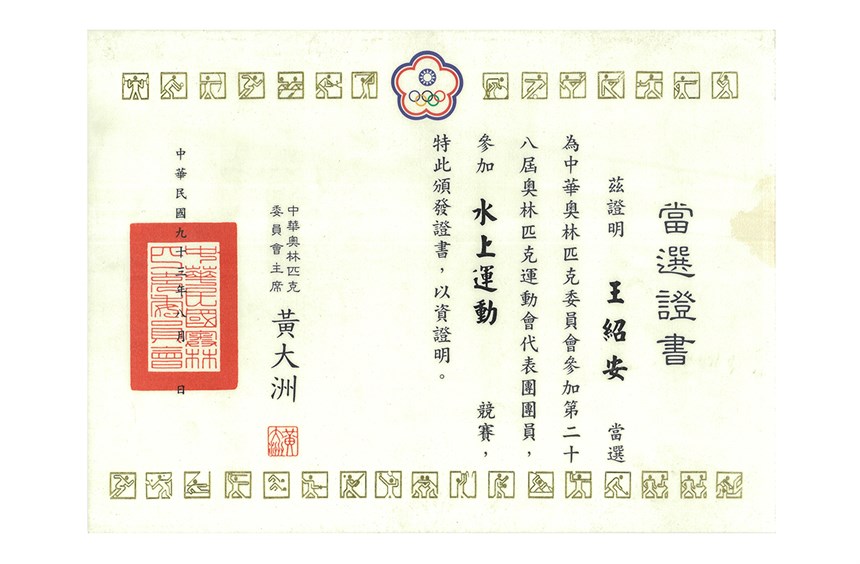 當選證書
茲證明 王紹安 當選
為中華奧林匹克委員會參加第二十
八屆奧林匹克運動會代表團團員，
參加 水上運動 競賽，
特此頒發證書，以資證明。
中華奧林匹克
委員會主席 黃大洲
中華民國九十三年八月 日
中華民國奧林
匹克委員會